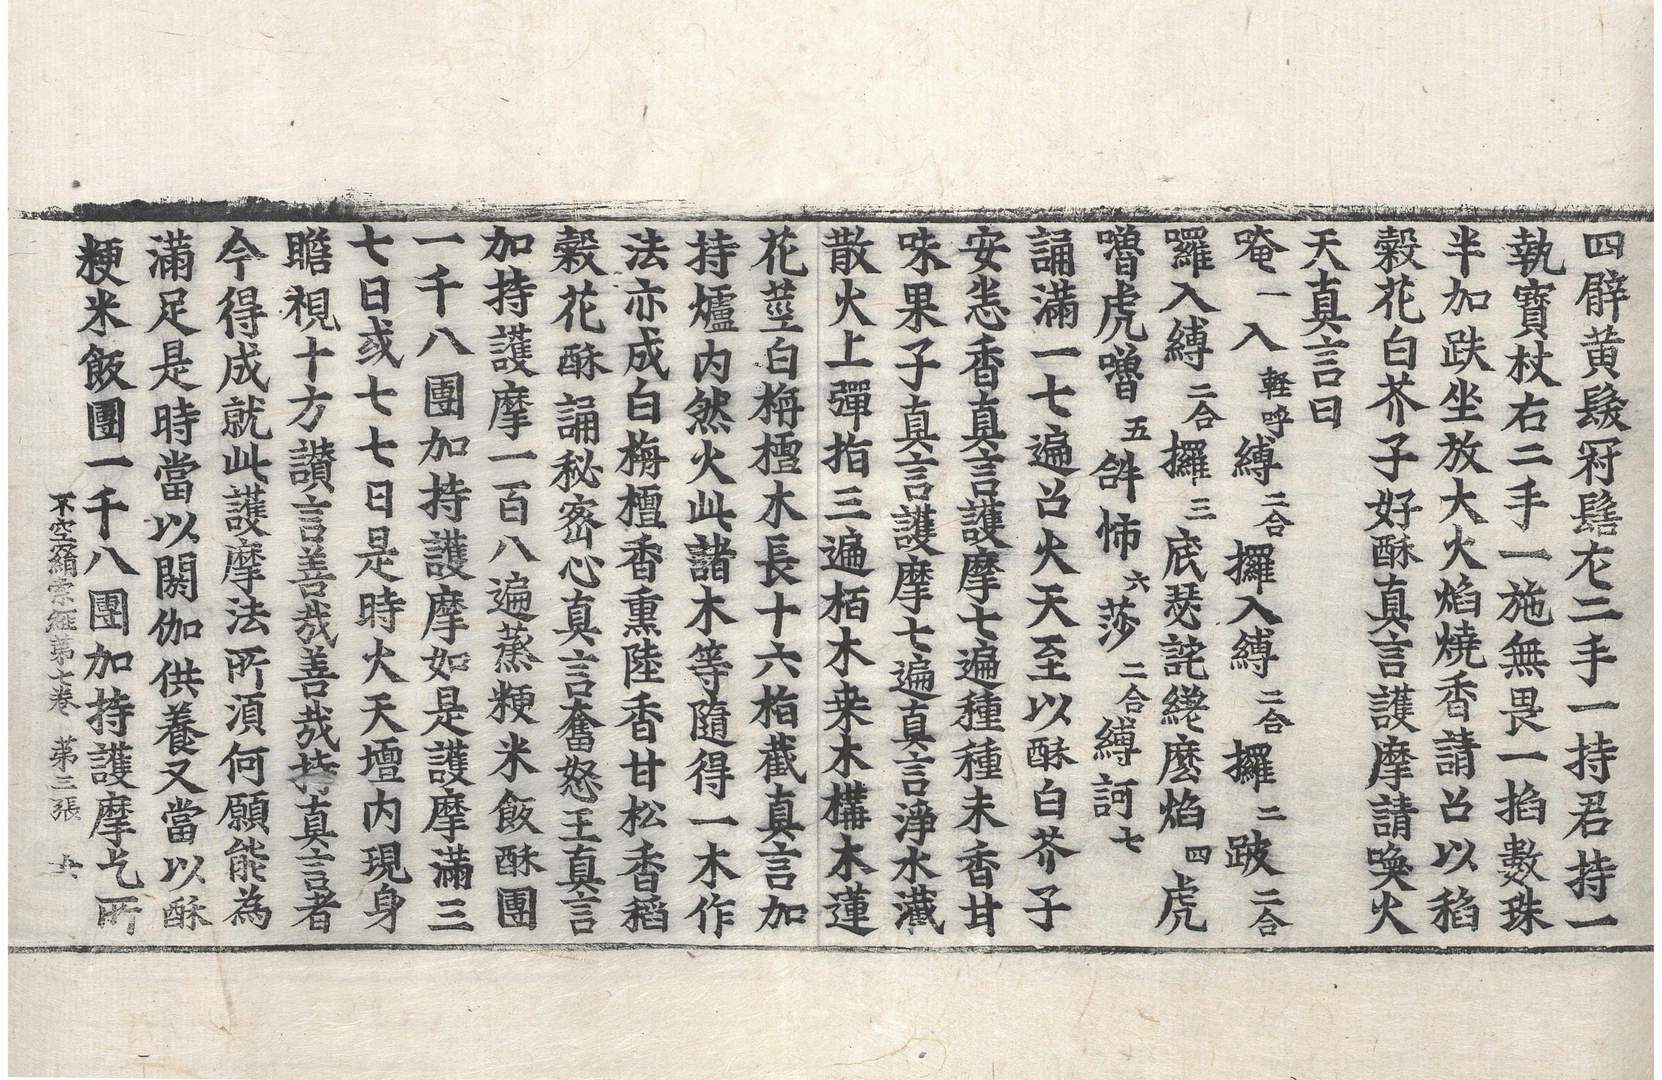 四臂黃髮冠髻左二手一持君持一
執寶杖右二手一施無畏一掐數珠
半加趺坐放大火焰燒香請召以稻
穀花白芥子好酥真言護摩請喚火
天真言曰
唵一入輕呼縛二合攞入縛二合攞二跛二合
囉入縛二合攞三底瑟詫縒麼焰四虎
嚕虎嚕五𤙖怖六莎二合縛訶七
誦滿一七遍召火天至以酥白芥子
安悉香真言護摩七遍種種未香甘
味果子真言護摩七遍真言淨水灑
散火上彈指三遍栢木桒木構木蓮
花莖白栴檀木長十六栢截真言加
持爐內然火此諸木等隨得一木作
法亦成白栴檀香熏陸香甘松香稻
穀花酥誦秘密心真言奮怒王真言
加持護摩一百八遍蒸粳米飯酥團
一千八團加持護摩如是護摩滿三
七日或七七日是時火天壇內現身
瞻視十方讃言善哉善哉持真言者
今得成就此護摩法所須何願能為
滿足是時當以閼伽供養又當以酥
粳米飯團一千八團加持護摩乞所
不空羂索經第七卷 第三張